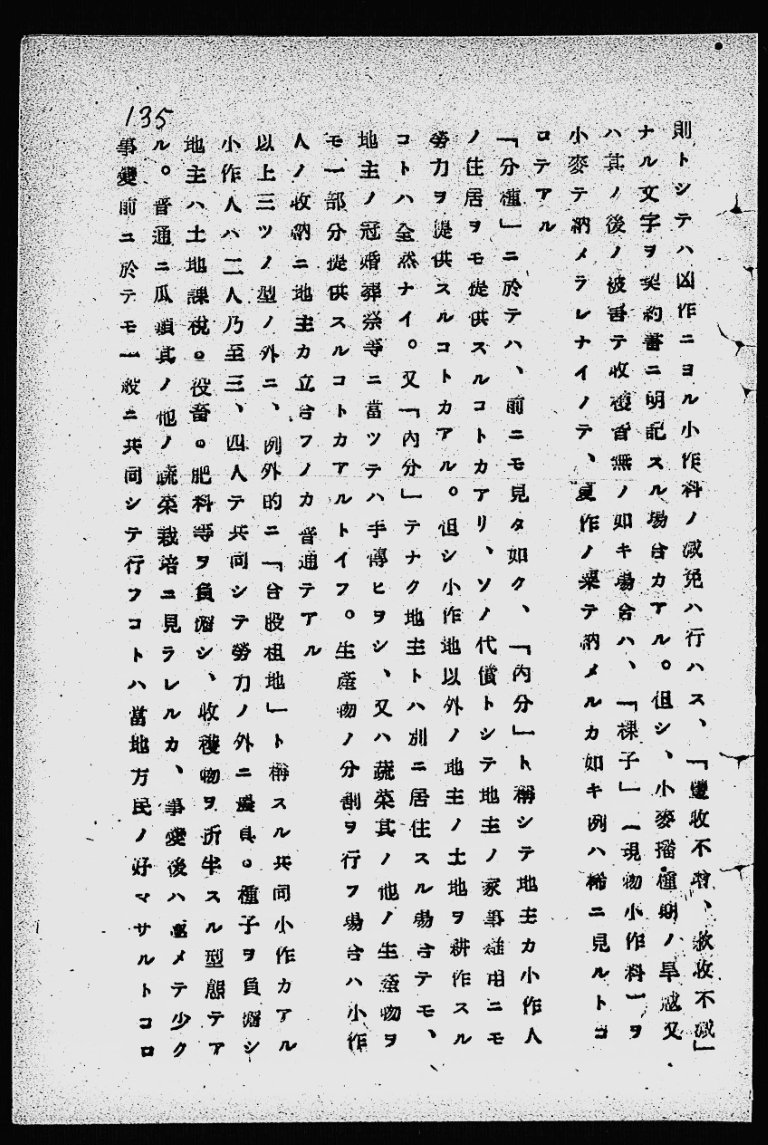 135
則トシテハ凶作ニヨル小作料ノ減免ハ行ハス、「豐收不增、歉收不減」
ナル文字ヲ契約書ニ明記スル場合カアル。但シ、小麥播種期ノ旱魃又
ハ其ノ後ノ被害テ收穫皆無ノ如キ場合ハ、「棵子」（現物小作料）ヲ
小麥テ納メラレナイノテ、夏作ノ粟テ納メルカ如キ例ハ稀ニ見ルトコ
ロテアル
「分種」ニ於テハ、前ニモ見タ如ク、「內分」ト稱シテ地主カ小作人
ノ住居ヲモ提供スルコトカアリ、ソノ代償トシテ地主ノ家事雜用ニモ
勞力ヲ提供スルコトカアル。但シ小作地以外ノ地主ノ土地ヲ耕作スル
コトハ全然ナイ。又「內分」テナク地主トハ別ニ居住スル場合テモ、
地主ノ冠婚葬祭等ニ當ツテハ手傳ヒヲシ、又ハ蔬菜其ノ他ノ生產物ヲ
モ一部分提供スルコトカアルトイフ。生產物ノ分割ヲ行フ場合ハ小作
人ノ收納ニ地主カ立合フノカ普通テアル
以上三ツノ型ノ外ニ、例外的ニ「合股租地」ト稱スル共同小作カアル
小作人ハ二人乃至三、四人テ共同シテ勞力ノ外ニ農具。種子ヲ負擔シ
地主ハ土地課稅。役畜。肥料等ヲ負擔シ、收穫物ヲ折半スル型態テア
ル。普通ニ瓜類其ノ他ノ蔬菜栽培ニ見ラレルカ、事變後ハ極メテ少ク
事變前ニ於テモ一般ニ共同シテ行フコトハ當地方民ノ好マサルトコロ